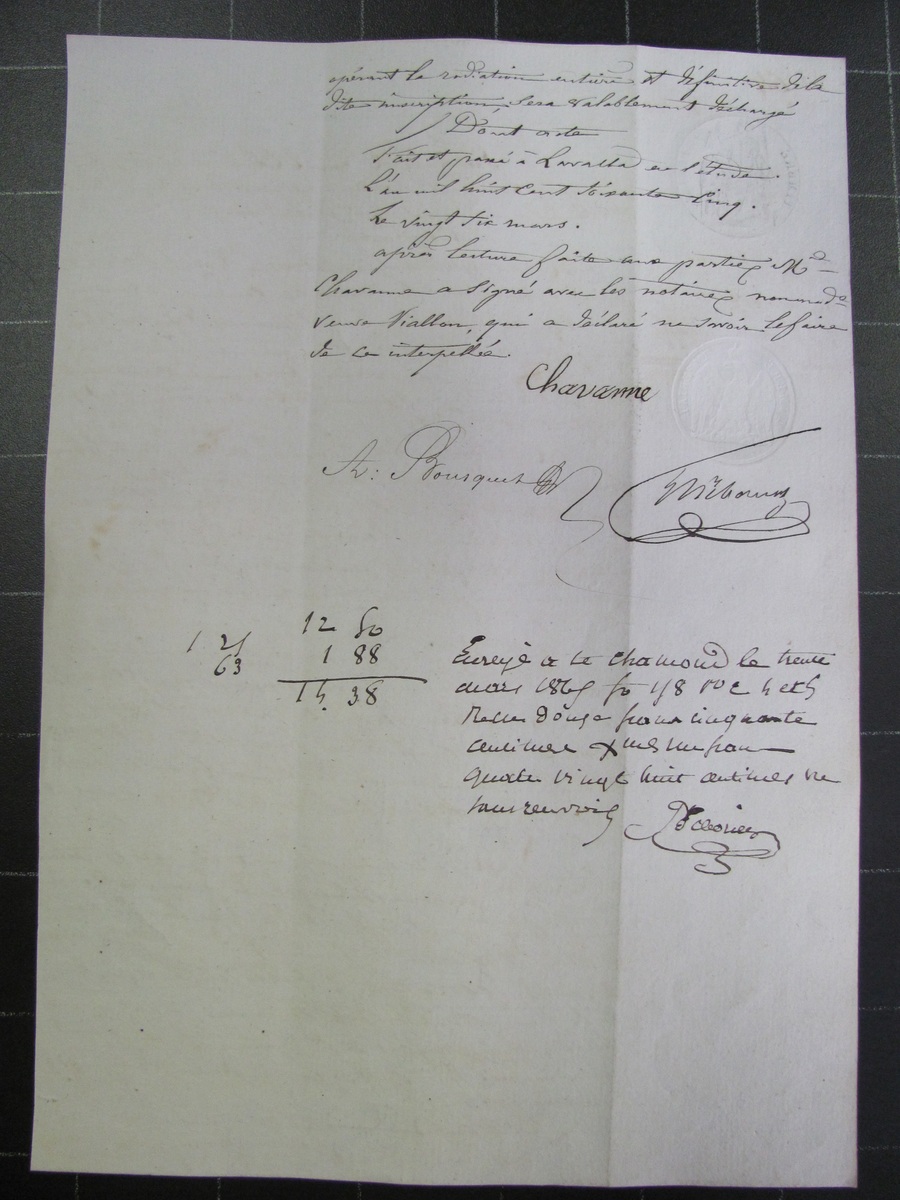 opérant la radiation entière et définitive de la
dite inscription, sera valablement déchargé
Dont acte
Fait et passé à Lavalla en l'étude.
L'an mil huit cent soixante cinq.
Le vingt six mars.
après lecture faite aux parties, Mr
Chavanne a signé avec les notaires, non mad.e
veuve Viallon, qui a déclaré ne savoir le faire
de ce interpellée.
Chavanne
A: Bousquet
12 50
1 25
1 88
63
14. 38
Enregé a St chamond le trente
mars 1865 fo 178 Vo C 4 et 5
Recu douze francs cinquante
centimes Xmes un franc
quatre vingt huit centimes
sans renvois